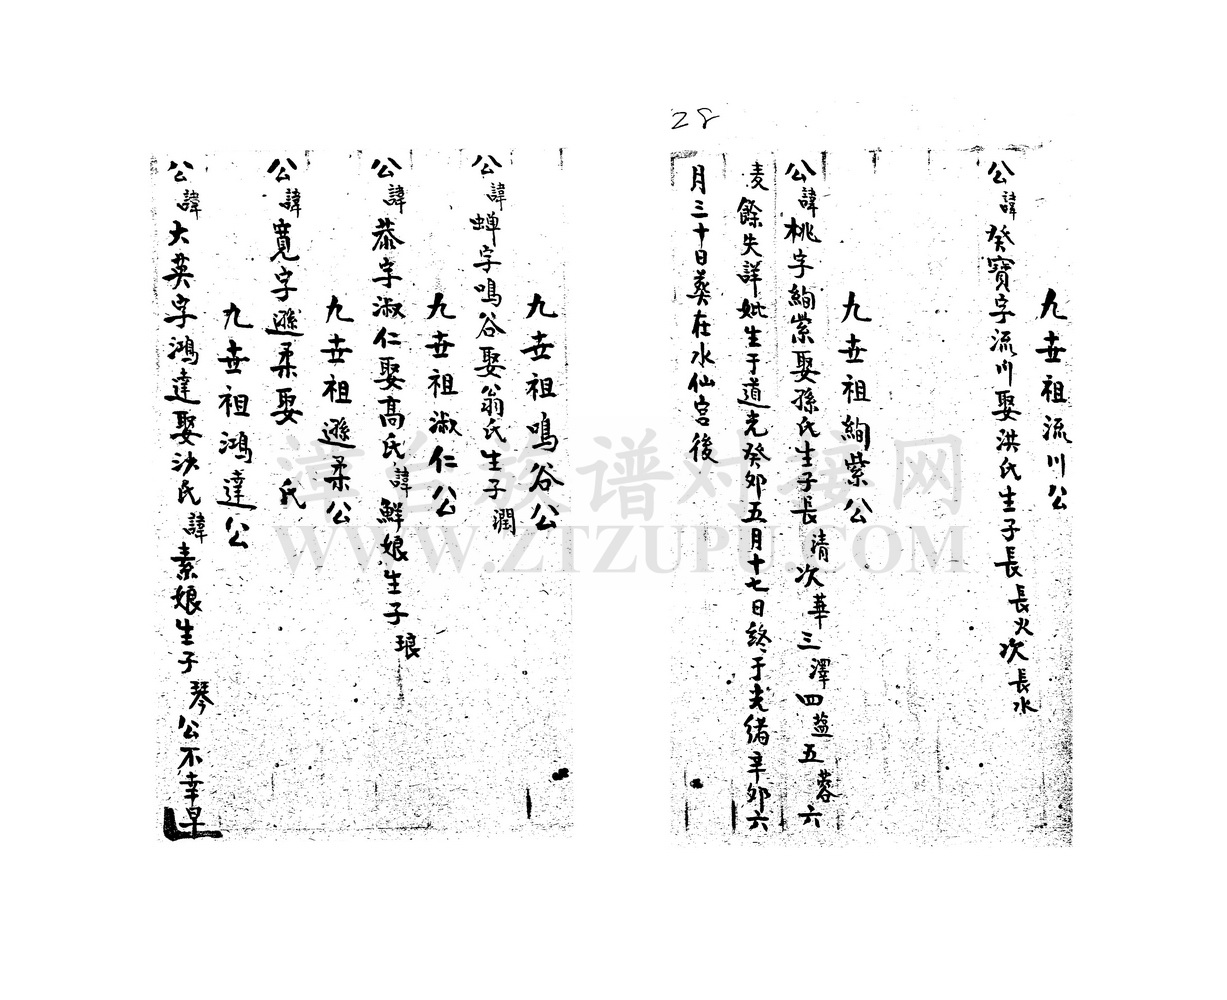 28
九世祖流川公
公諱癸寶字流川娶洪氏生子長長火次長水
九世祖絢紫公
公諱桃字絢紫娶孫氏生子長清次華三澤四益五蓉六
麦餘失詳妣生于道光癸卯五月十七日終于光緒辛卯六
月三十日葬在水仙宮後
九世祖鳴谷公
公諱蟬字鳴谷娶翁氏生子潤
九世祖淑仁公
公諱恭字淑仁娶高氏諱鮮娘生子琅
九世祖遜柔公
公諱寬字遜柔娶 氏
九世祖鴻達公
公諱大英字鴻達娶沙氏諱素娘生子琴公不幸早
漳台族谱对接网
WWW.ZTZUPU.COM